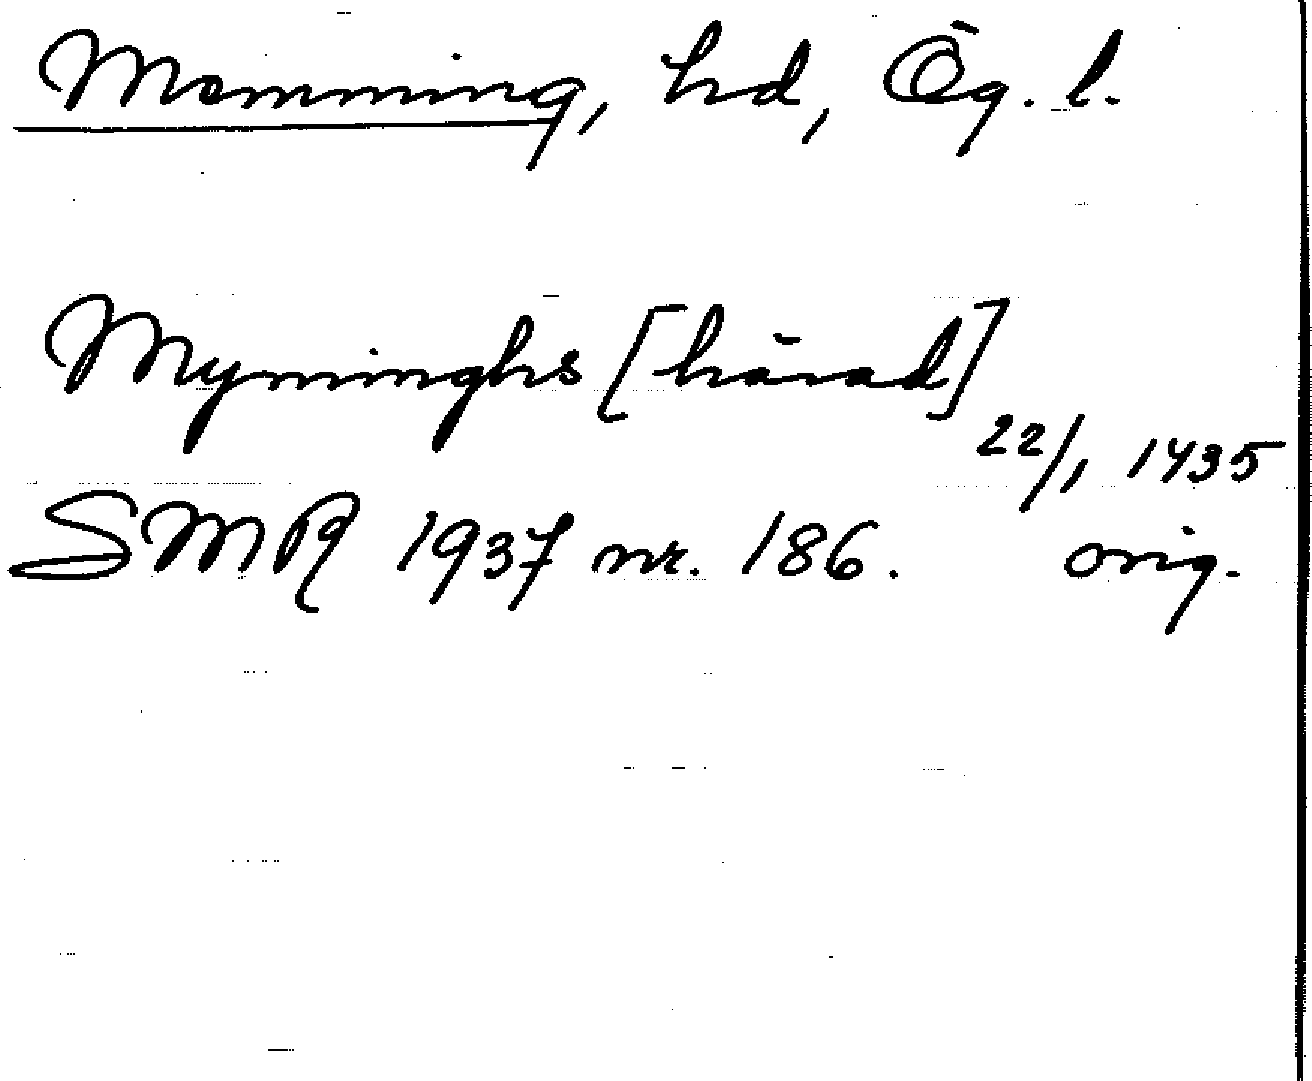 Memming, hd, Ög. l.
Myninghs [härad]
22/1 1435
SMR 1937 nr. 186. orig.